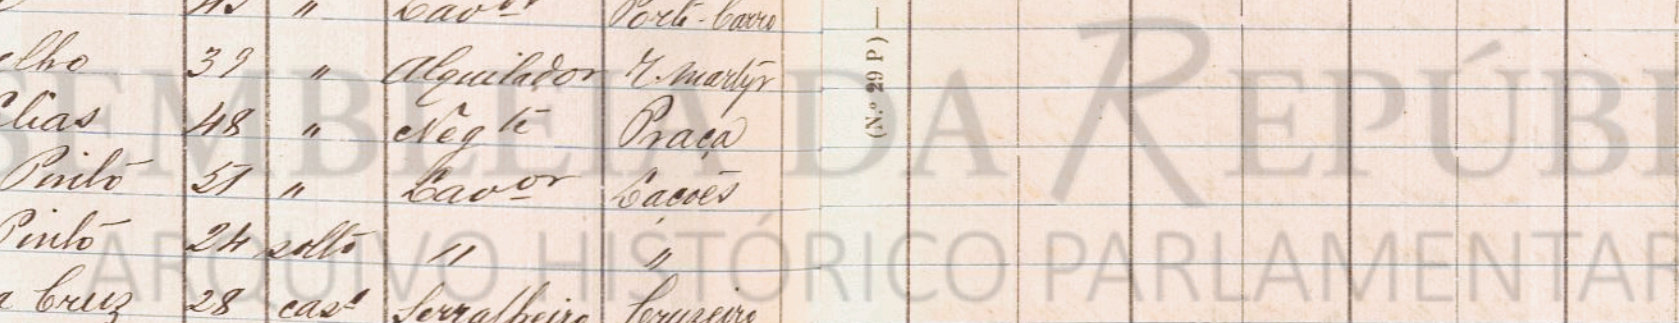 45 " Lavor Porte-Carro
elho 39 " Alquilador R. Martyr
Elias 48 " Negte Praça
Pinto 51 " Lavor Lações
Pinto 24 solto " "
a Cruz 28 casdo Serralheiro Cruzeiro
(N.º 29 P)
ASSEMBLEIA DA REPÚBLI
ARQUIVO HISTÓRICO PARLAMENTAR